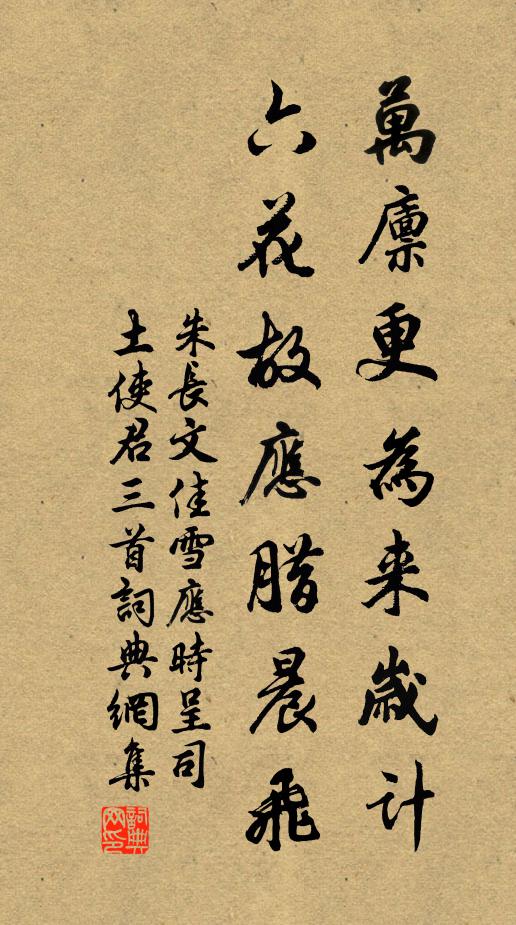 萬廩更為来歲计
六花故應腊晨飛
朱長文佳雪應時呈司
土使君三首詞典網集
詞典网印